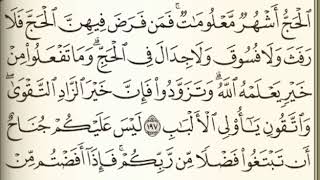 ٱلْحَجُّ أَشْهُرٌ مَّعْلُومَٰتٌ ۚ فَمَن فَرَضَ فِيهِنَّ ٱلْحَجَّ فَلَا
رَفَثَ وَلَا فُسُوقَ وَلَا جِدَالَ فِى ٱلْحَجِّ ۗ وَمَا تَفْعَلُوا۟ مِنْ
خَيْرٍ يَعْلَمْهُ ٱللَّهُ ۗ وَتَزَوَّدُوا۟ فَإِنَّ خَيْرَ ٱلزَّادِ ٱلتَّقْوَىٰ ۚ
وَٱتَّقُونِ يَٰٓأُو۟لِى ٱلْأَلْبَٰبِ ١٩٧ لَيْسَ عَلَيْكُمْ جُنَاحٌ
أَن تَبْتَغُوا۟ فَضْلًا مِّن رَّبِّكُمْ ۚ فَإِذَآ أَفَضْتُم مِّنْ